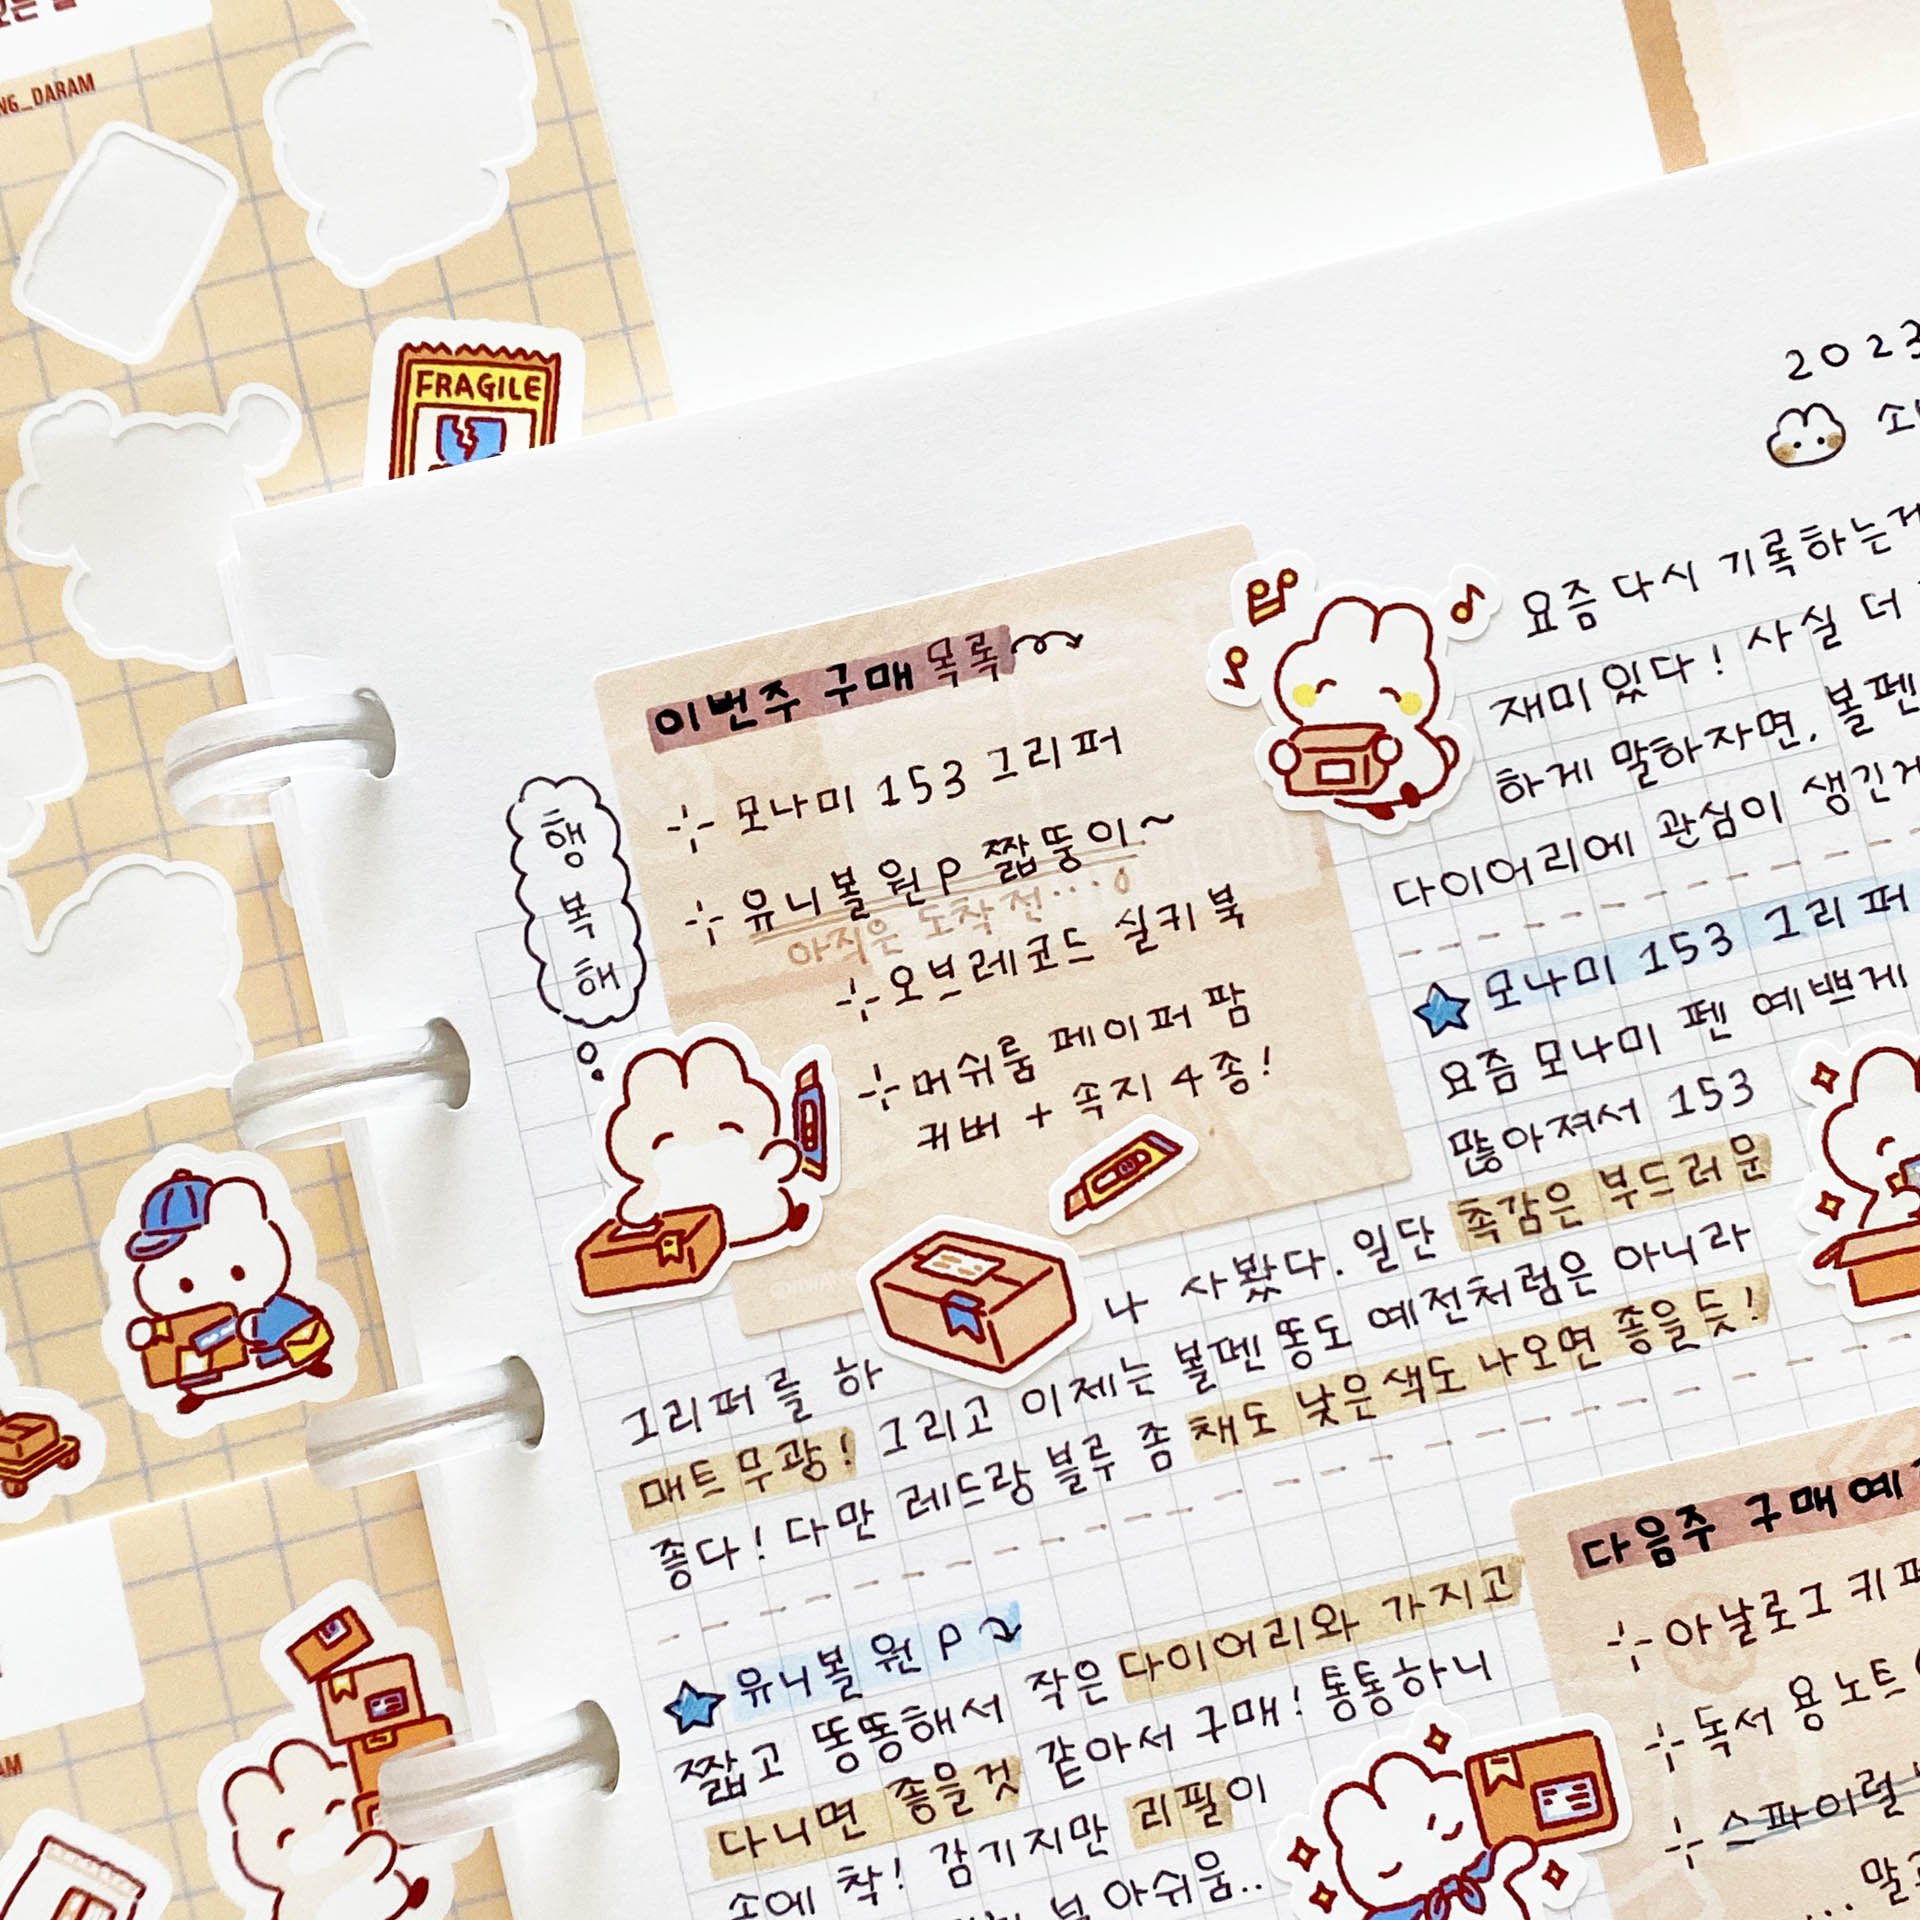 NG_DARAM
FRAGILE
2023
이번주 구매 목록
모나미 153 그리퍼
유니볼 원 P 짧뚱이~
아직은 도착 전...
오브레코드 실키 북
머쉬룸 페이퍼 팜
커버 + 속지 4종!
행
복
해
요즘 다시 기록하는게
재미있다! 사실 더
하게 말하자면, 볼펜
다이어리에 관심이 생긴게
모나미 153 그리퍼
요즘 모나미 펜 예쁘게
많아져서 153
그리퍼를 하나 사봤다. 일단 촉감은 부드러운
매트 무광! 그리고 이제는 볼펜 똥도 예전처럼은 아니라
좋다! 다만 레드랑 블루 좀 채도 낮은 색도 나오면 좋을 듯!
유니볼 원 P
짧고 똥똥해서 작은 다이어리와 가지고
다니면 좋을것 같아서 구매! 통통하니
손에 착! 감기지만 리필이
아쉬움..
다음주 구매 예
아날로그 키퍼
독서 용 노트
스파이럴